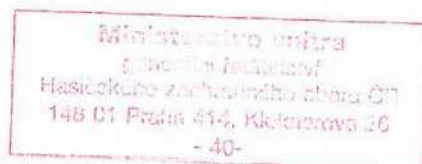 Ministerstvo vnitra
generální ředitelství
Hasičského záchranného sboru ČR
148 01 Praha 414, Kloknerova 26
- 40-